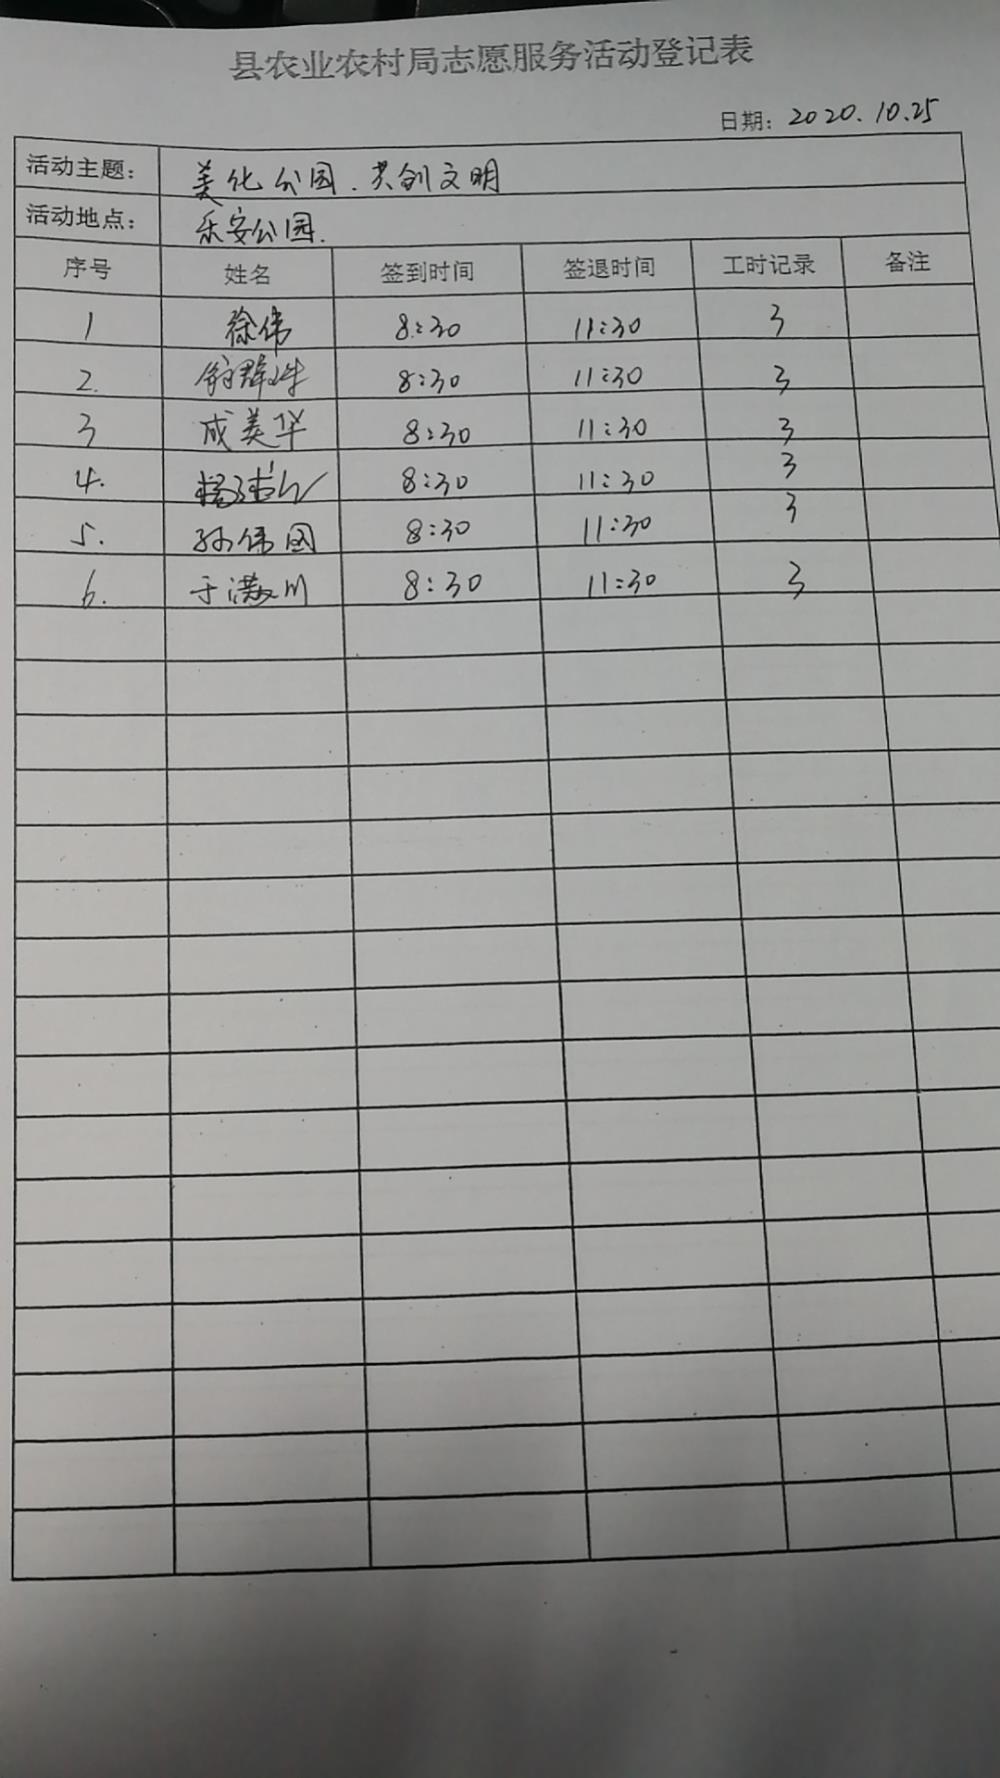 县农业农村局志愿服务活动登记表
日期：2020.10.25
活动主题： 美化公园.共创文明
活动地点： 乐安公园.
序号 姓名 签到时间 签退时间 工时记录 备注
1 徐伟 8:30 11:30 3
2. 8:30 11:30 3
3 成美华 8:30 11:30 3
4. 8:30 11:30 3
5. 孙伟国 8:30 11:30 3
6. 于满川 8:30 11:30 3